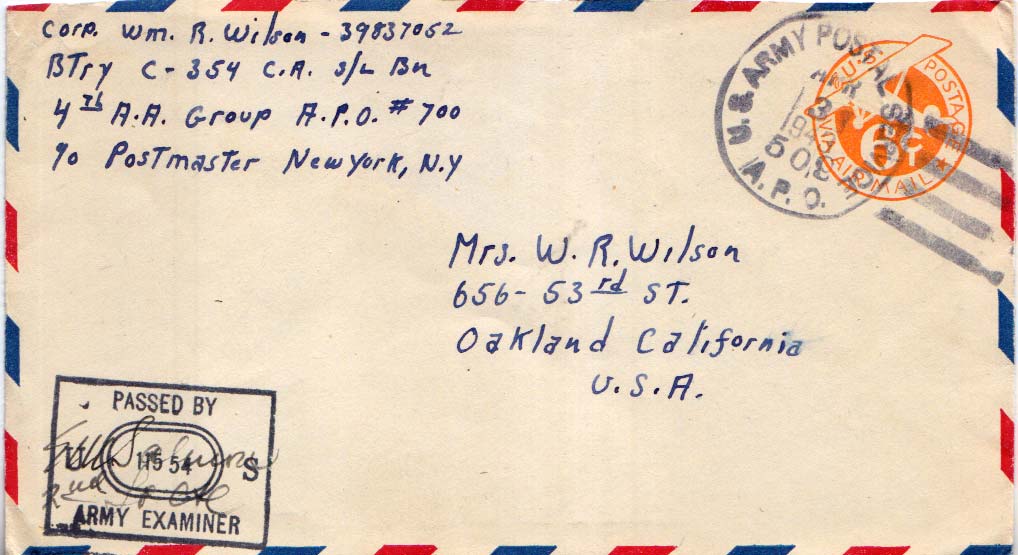 Corp. Wm. R. Wilson - 39837052
BTry C-354 C.A. S/L Bn
4th A.A. Group A.P.O. # 700
c/o Postmaster New York, N.Y
U.S. ARMY POSTAL
APR
3
A.P.O.
U.S. POSTAGE
6¢
VIA AIR MAIL
Mrs. W. R. Wilson
656- 53rd ST.
Oakland California
U.S.A.
PASSED BY
S
ARMY EXAMINER